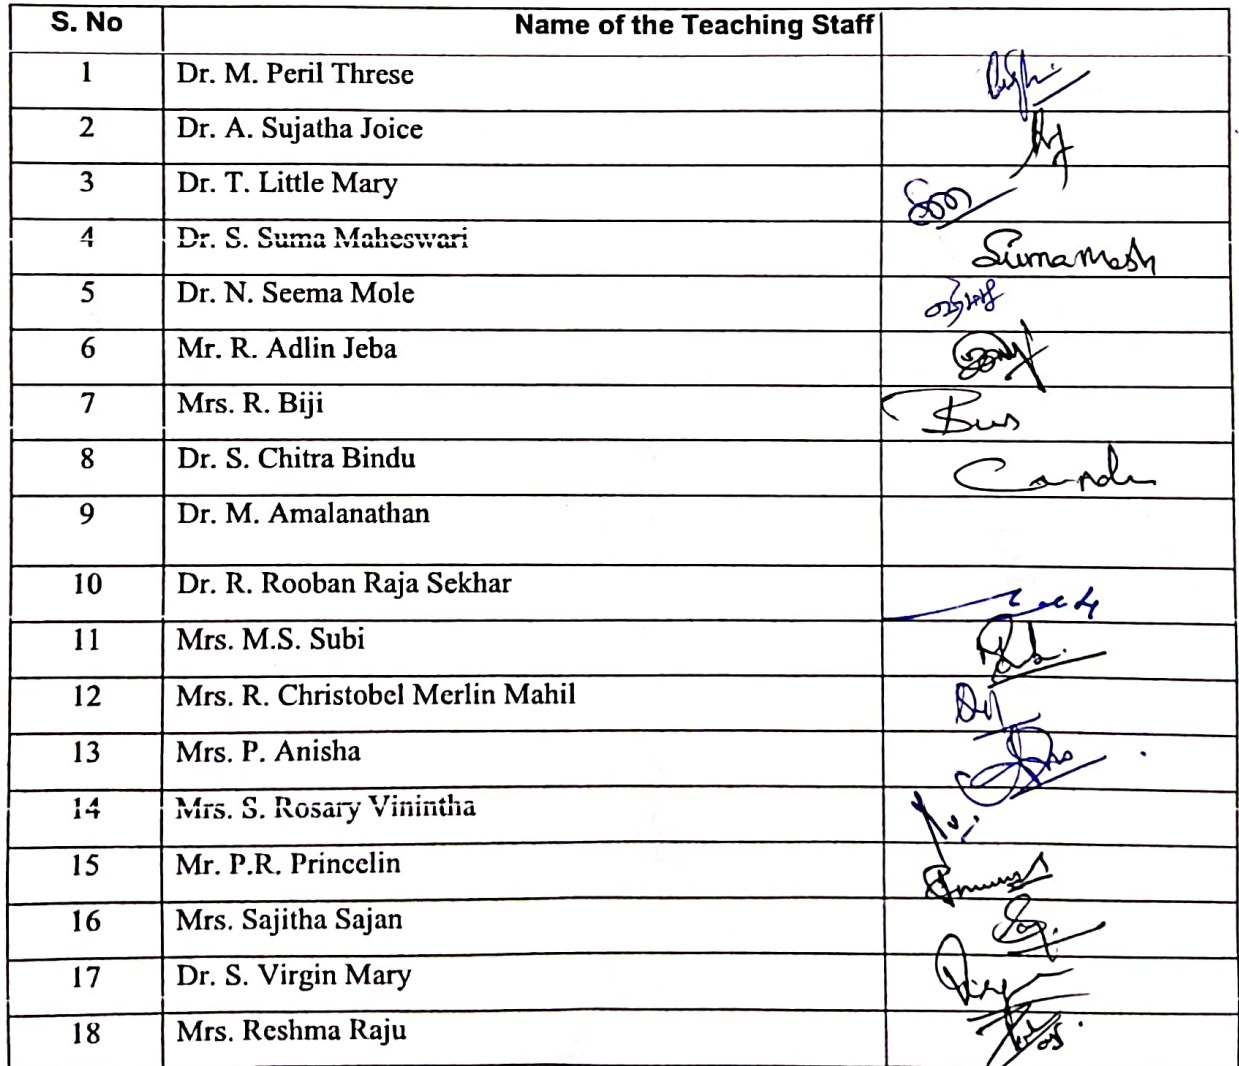 S. No Name of the Teaching Staff
1 Dr. M. Peril Threse
2 Dr. A. Sujatha Joice
3 Dr. T. Little Mary
4 Dr. S. Suma Maheswari Sumamesh
5 Dr. N. Seema Mole
6 Mr. R. Adlin Jeba
7 Mrs. R. Biji
8 Dr. S. Chitra Bindu
9 Dr. M. Amalanathan
10 Dr. R. Rooban Raja Sekhar
11 Mrs. M.S. Subi
12 Mrs. R. Christobel Merlin Mahil
13 Mrs. P. Anisha
14 Mrs. S. Rosary Vinintha
15 Mr. P.R. Princelin
16 Mrs. Sajitha Sajan
17 Dr. S. Virgin Mary
18 Mrs. Reshma Raju